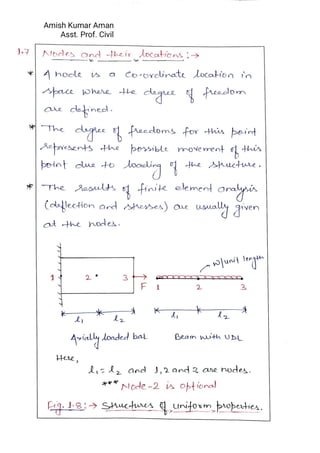 Amish Kumar Aman
Asst. Prof. Civil
1.7 Nodes and their locations :→
* A node is a co-ordinate location in
space where the degree of freedom
are defined.
* The degree of freedoms for this point
represents the possible movement of this
point due to loading of the structure.
* The results of finite element analysis
(deflection and stresses) are usually given
at the nodes.
w/unit length
1 2 3 F 1 2 3
l₁ l₂ l₁ l₂
Axially loaded bar Beam with UDL
Here,
l₁ = l₂ and 1, 2 and 3 are nodes.
*** Node-2 is optional
Fig. 1.8: → Structures of uniform properties.